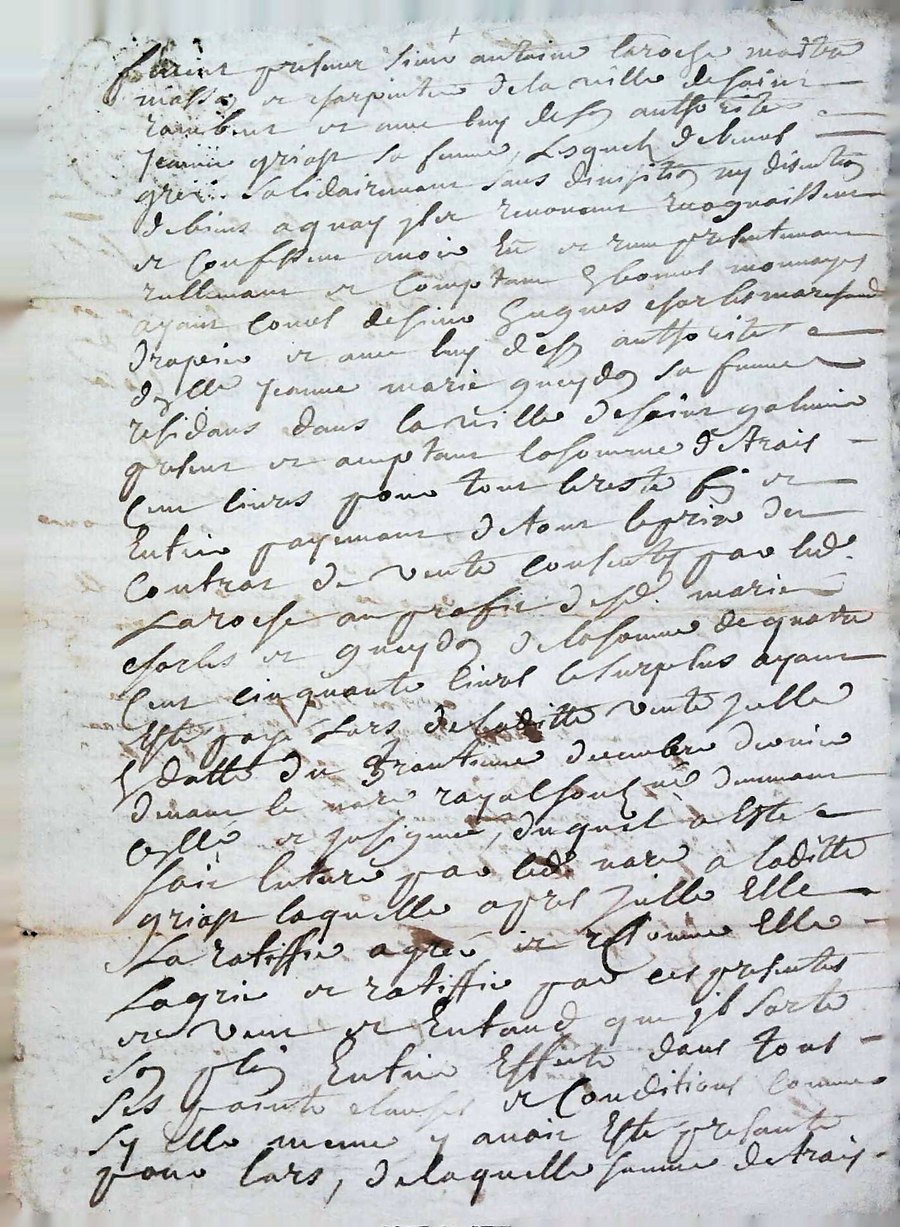 furent presens sieur antoine laroche maitre
masson et charpentier de la ville de saint
rambert et avec luy de son authorité
Jeanne griost sa femme, Lesquels de leurs
grés solidairement sans division ny discution
de biens a quoy ils renoncent recognaissent
et Confessent avoir Eu et receu presentement
reellement et Comptant En bonnes monnoyes
ayant Cours de sieur hugues charles marchand
drapier et avec luy de son authorité
dlle Jeanne marie gueydon sa femme
residans dans la ville de saint galmier
presens et acceptans la somme de trais
Cens livres pour tout le reste fin et
Entier payement de tout le prix du
Contrat de vente consentie par led.
Laroche au profit desd. mariés
charles et gueydon de la somme de quatre
Cent cinquante livres le surplus ayant
Esté payé Lors de laditte vente Icelle
En datte du trantieme decembre dernier
devant le nore rayal soussigné deumant
Collé et insigné, duquel a Esté
fait lecture par led. nore a laditte
griost laquelle apres Icelle Elle
La ratiffié agreé et Elle
Lagrée et ratiffie par ces presentes
et veut et Entand quil sorte
son plein Entier Effect dans tous
ses points clauses et Conditions comme
sy elle meme y avoit Esté presante
pour lors, de laquelle somme de trais